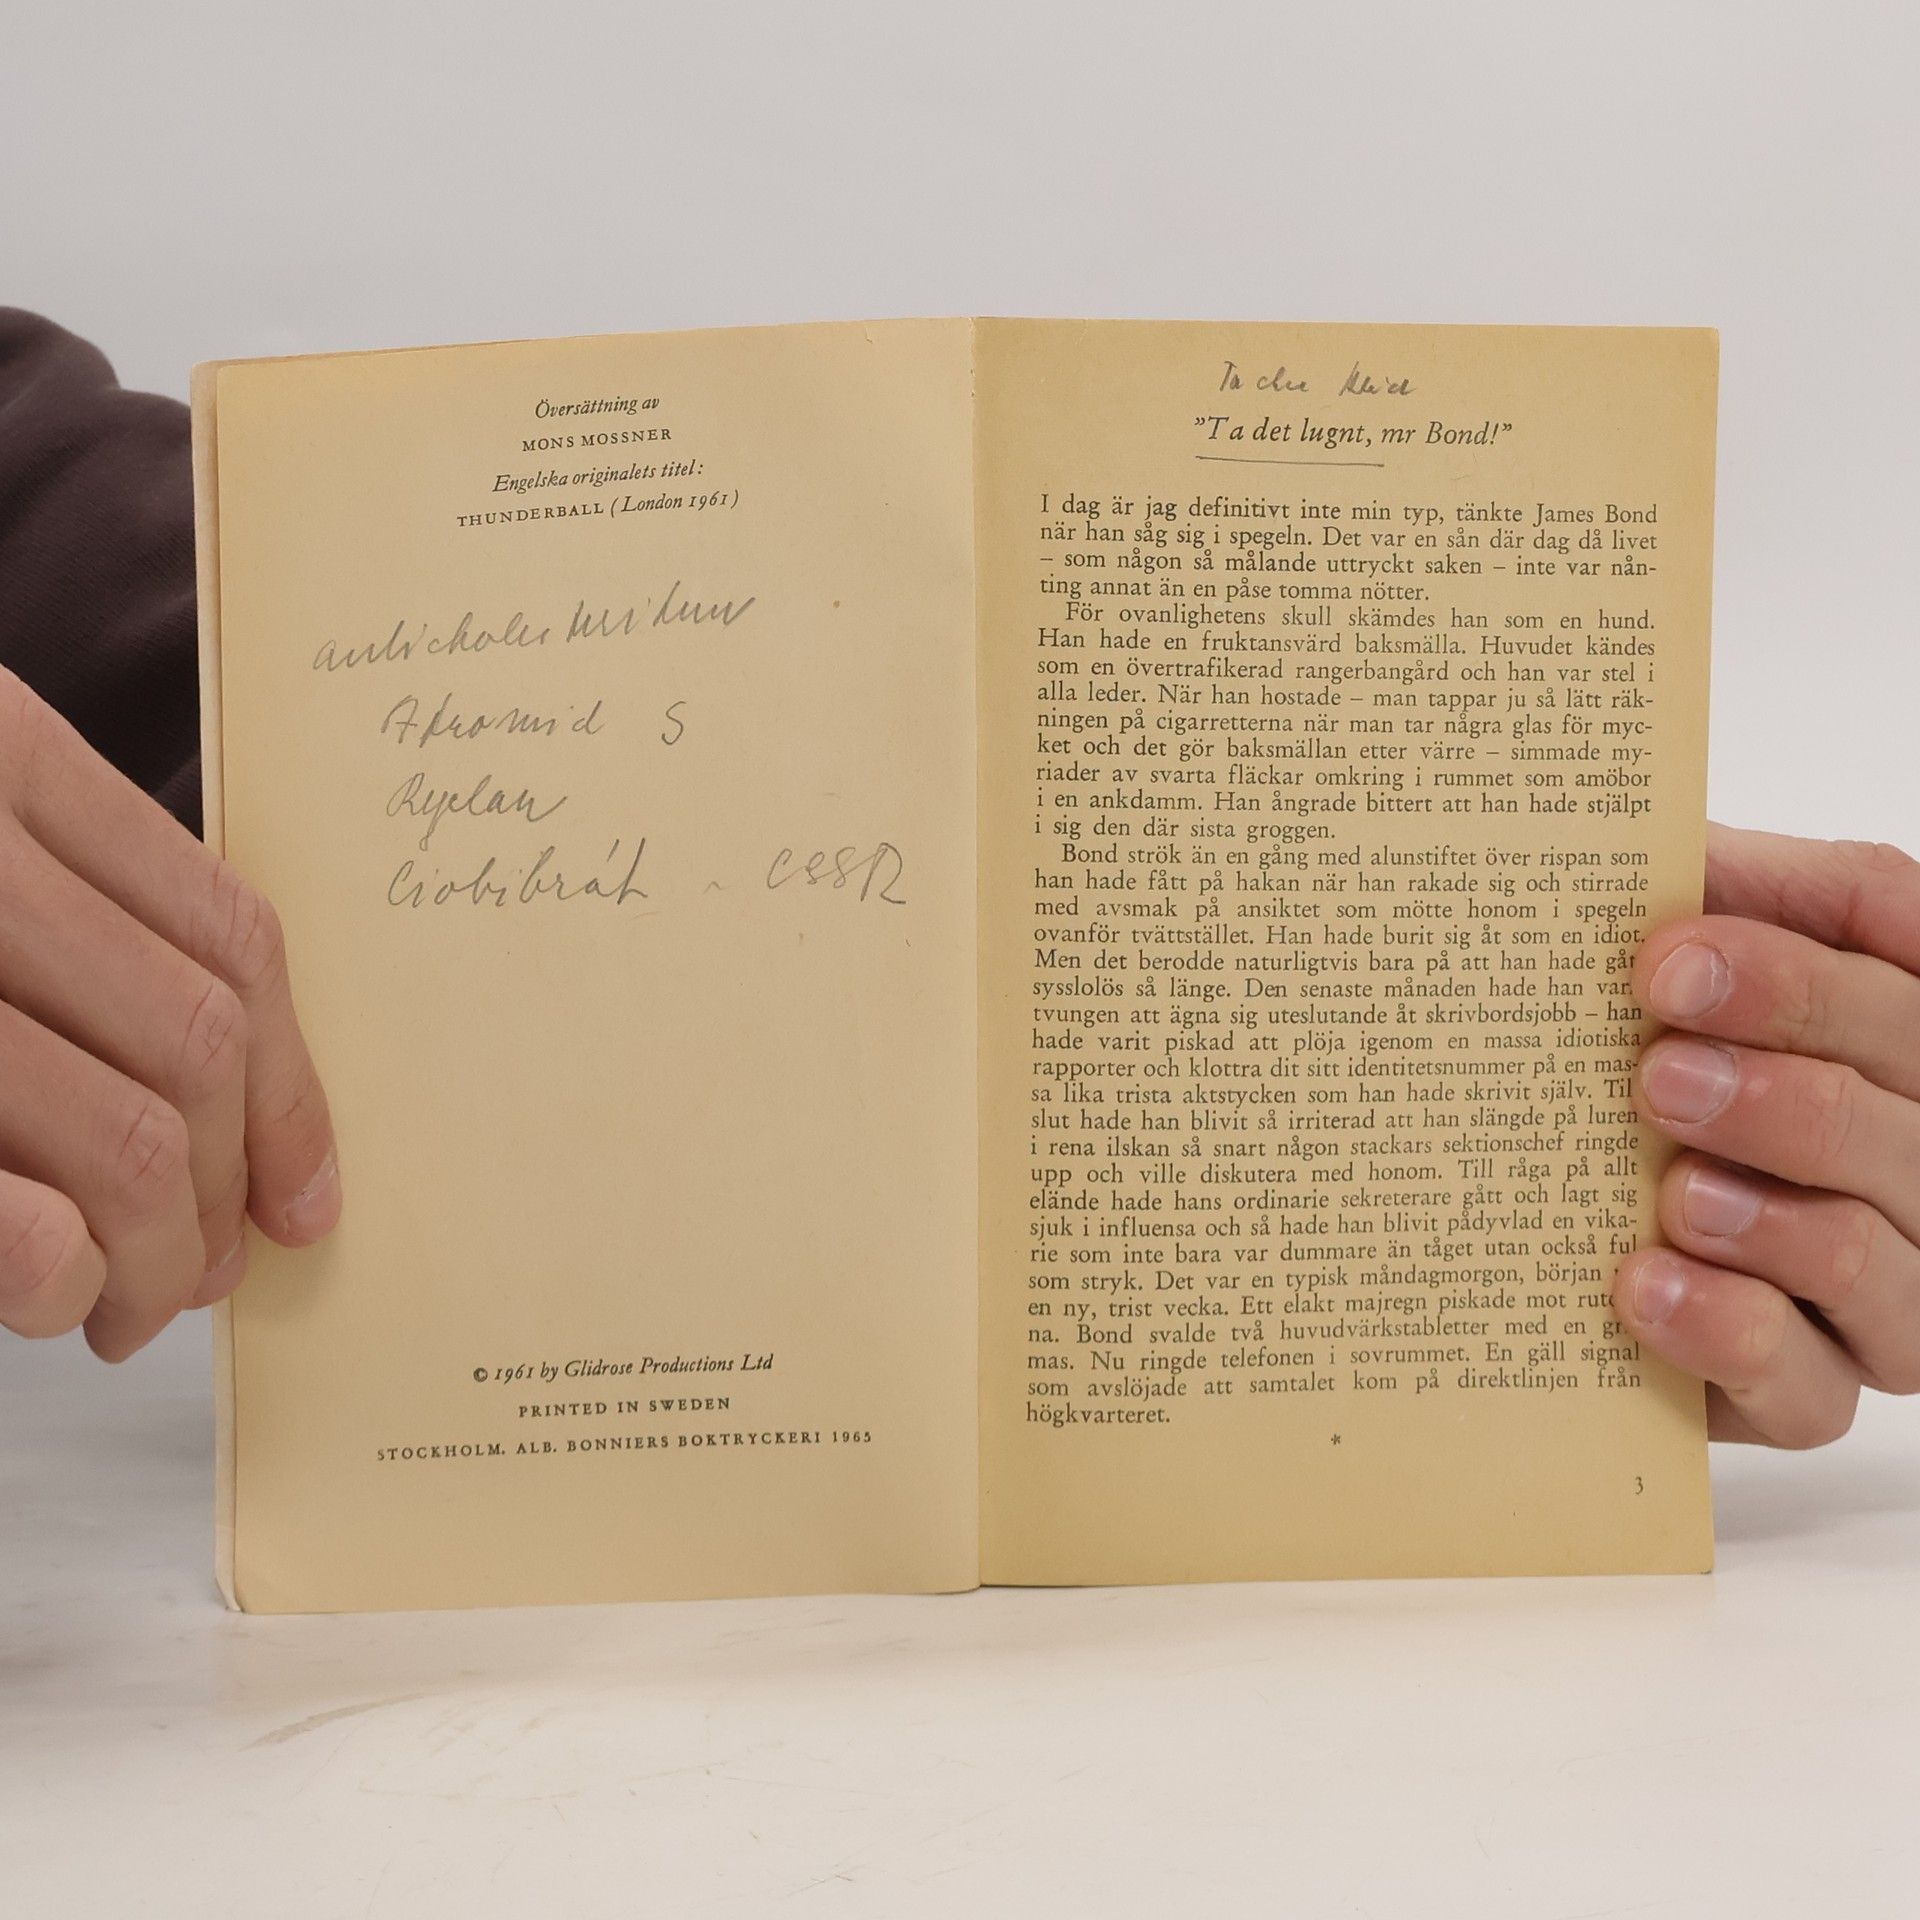 Översättning av
MONS MOSSNER
Engelska originalets titel:
THUNDERBALL (London 1961)
Atromid S
Regelan
Clobibrát - CSSR
© 1961 by Glidrose Productions Ltd
PRINTED IN SWEDEN
STOCKHOLM. ALB. BONNIERS BOKTRYCKERI 1965
"Ta det lugnt, mr Bond!"
I dag är jag definitivt inte min typ, tänkte James Bond
när han såg sig i spegeln. Det var en sån där dag då livet
– som någon så målande uttryckt saken – inte var nån-
ting annat än en påse tomma nötter.
För ovanlighetens skull skämdes han som en hund.
Han hade en fruktansvärd baksmälla. Huvudet kändes
som en övertrafikerad rangerbangård och han var stel i
alla leder. När han hostade – man tappar ju så lätt räk-
ningen på cigarretterna när man tar några glas för myc-
ket och det gör baksmällan etter värre – simmade my-
riader av svarta fläckar omkring i rummet som amöbor
i en ankdamm. Han ångrade bittert att han hade stjälpt
i sig den där sista groggen.
Bond strök än en gång med alunstiftet över rispan som
han hade fått på hakan när han rakade sig och stirrade
med avsmak på ansiktet som mötte honom i spegeln
ovanför tvättstället. Han hade burit sig åt som en idiot.
Men det berodde naturligtvis bara på att han hade gått
sysslolös så länge. Den senaste månaden hade han var
tvungen att ägna sig uteslutande åt skrivbordsjobb – han
hade varit piskad att plöja igenom en massa idiotiska
rapporter och klottra dit sitt identitetsnummer på en mas-
sa lika trista aktstycken som han hade skrivit själv. Till
slut hade han blivit så irriterad att han slängde på luren
i rena ilskan så snart någon stackars sektionschef ringde
upp och ville diskutera med honom. Till råga på allt
elände hade hans ordinarie sekreterare gått och lagt sig
sjuk i influensa och så hade han blivit pådyvlad en vika-
rie som inte bara var dummare än tåget utan också ful
som stryk. Det var en typisk måndagmorgon, början
en ny, trist vecka. Ett elakt majregn piskade mot rutor
na. Bond svalde två huvudvärkstabletter med en
mas. Nu ringde telefonen i sovrummet. En gäll signal
som avslöjade att samtalet kom på direktlinjen från
högkvarteret.
*
3